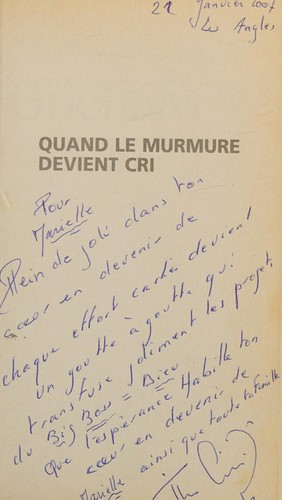 21 Janvier 2007
Les Angles
QUAND LE MURMURE
DEVIENT CRI
Pour
Marielle
Plein de joli dans ton
cœur en devenir de
chaque effort caché devient
un goutte à goutte qui
transfuse joliment les projets
du Big Boss = Dieu
Que l'espérance Habille ton
cœur en devenir de
Marielle ainsi que toute ta famille